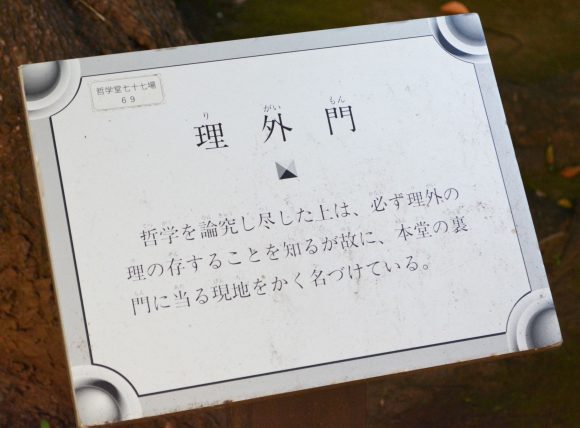 哲学堂七十七場
69
理外門
哲学を論究し尽した上は、必ず理外の
理の存することを知るが故に、本堂の裏
門に当る現地をかく名づけている。